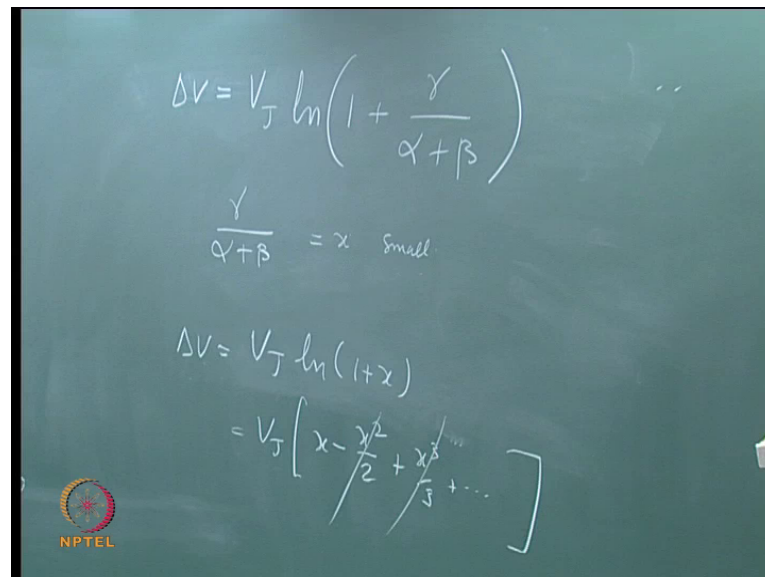 ΔV = V_J ln(1 + γ/(α+β))
γ/(α+β) = x small.
ΔV = V_J ln(1+x)
= V_J [x - x²/2 + x³/3 + ...]
NPTEL